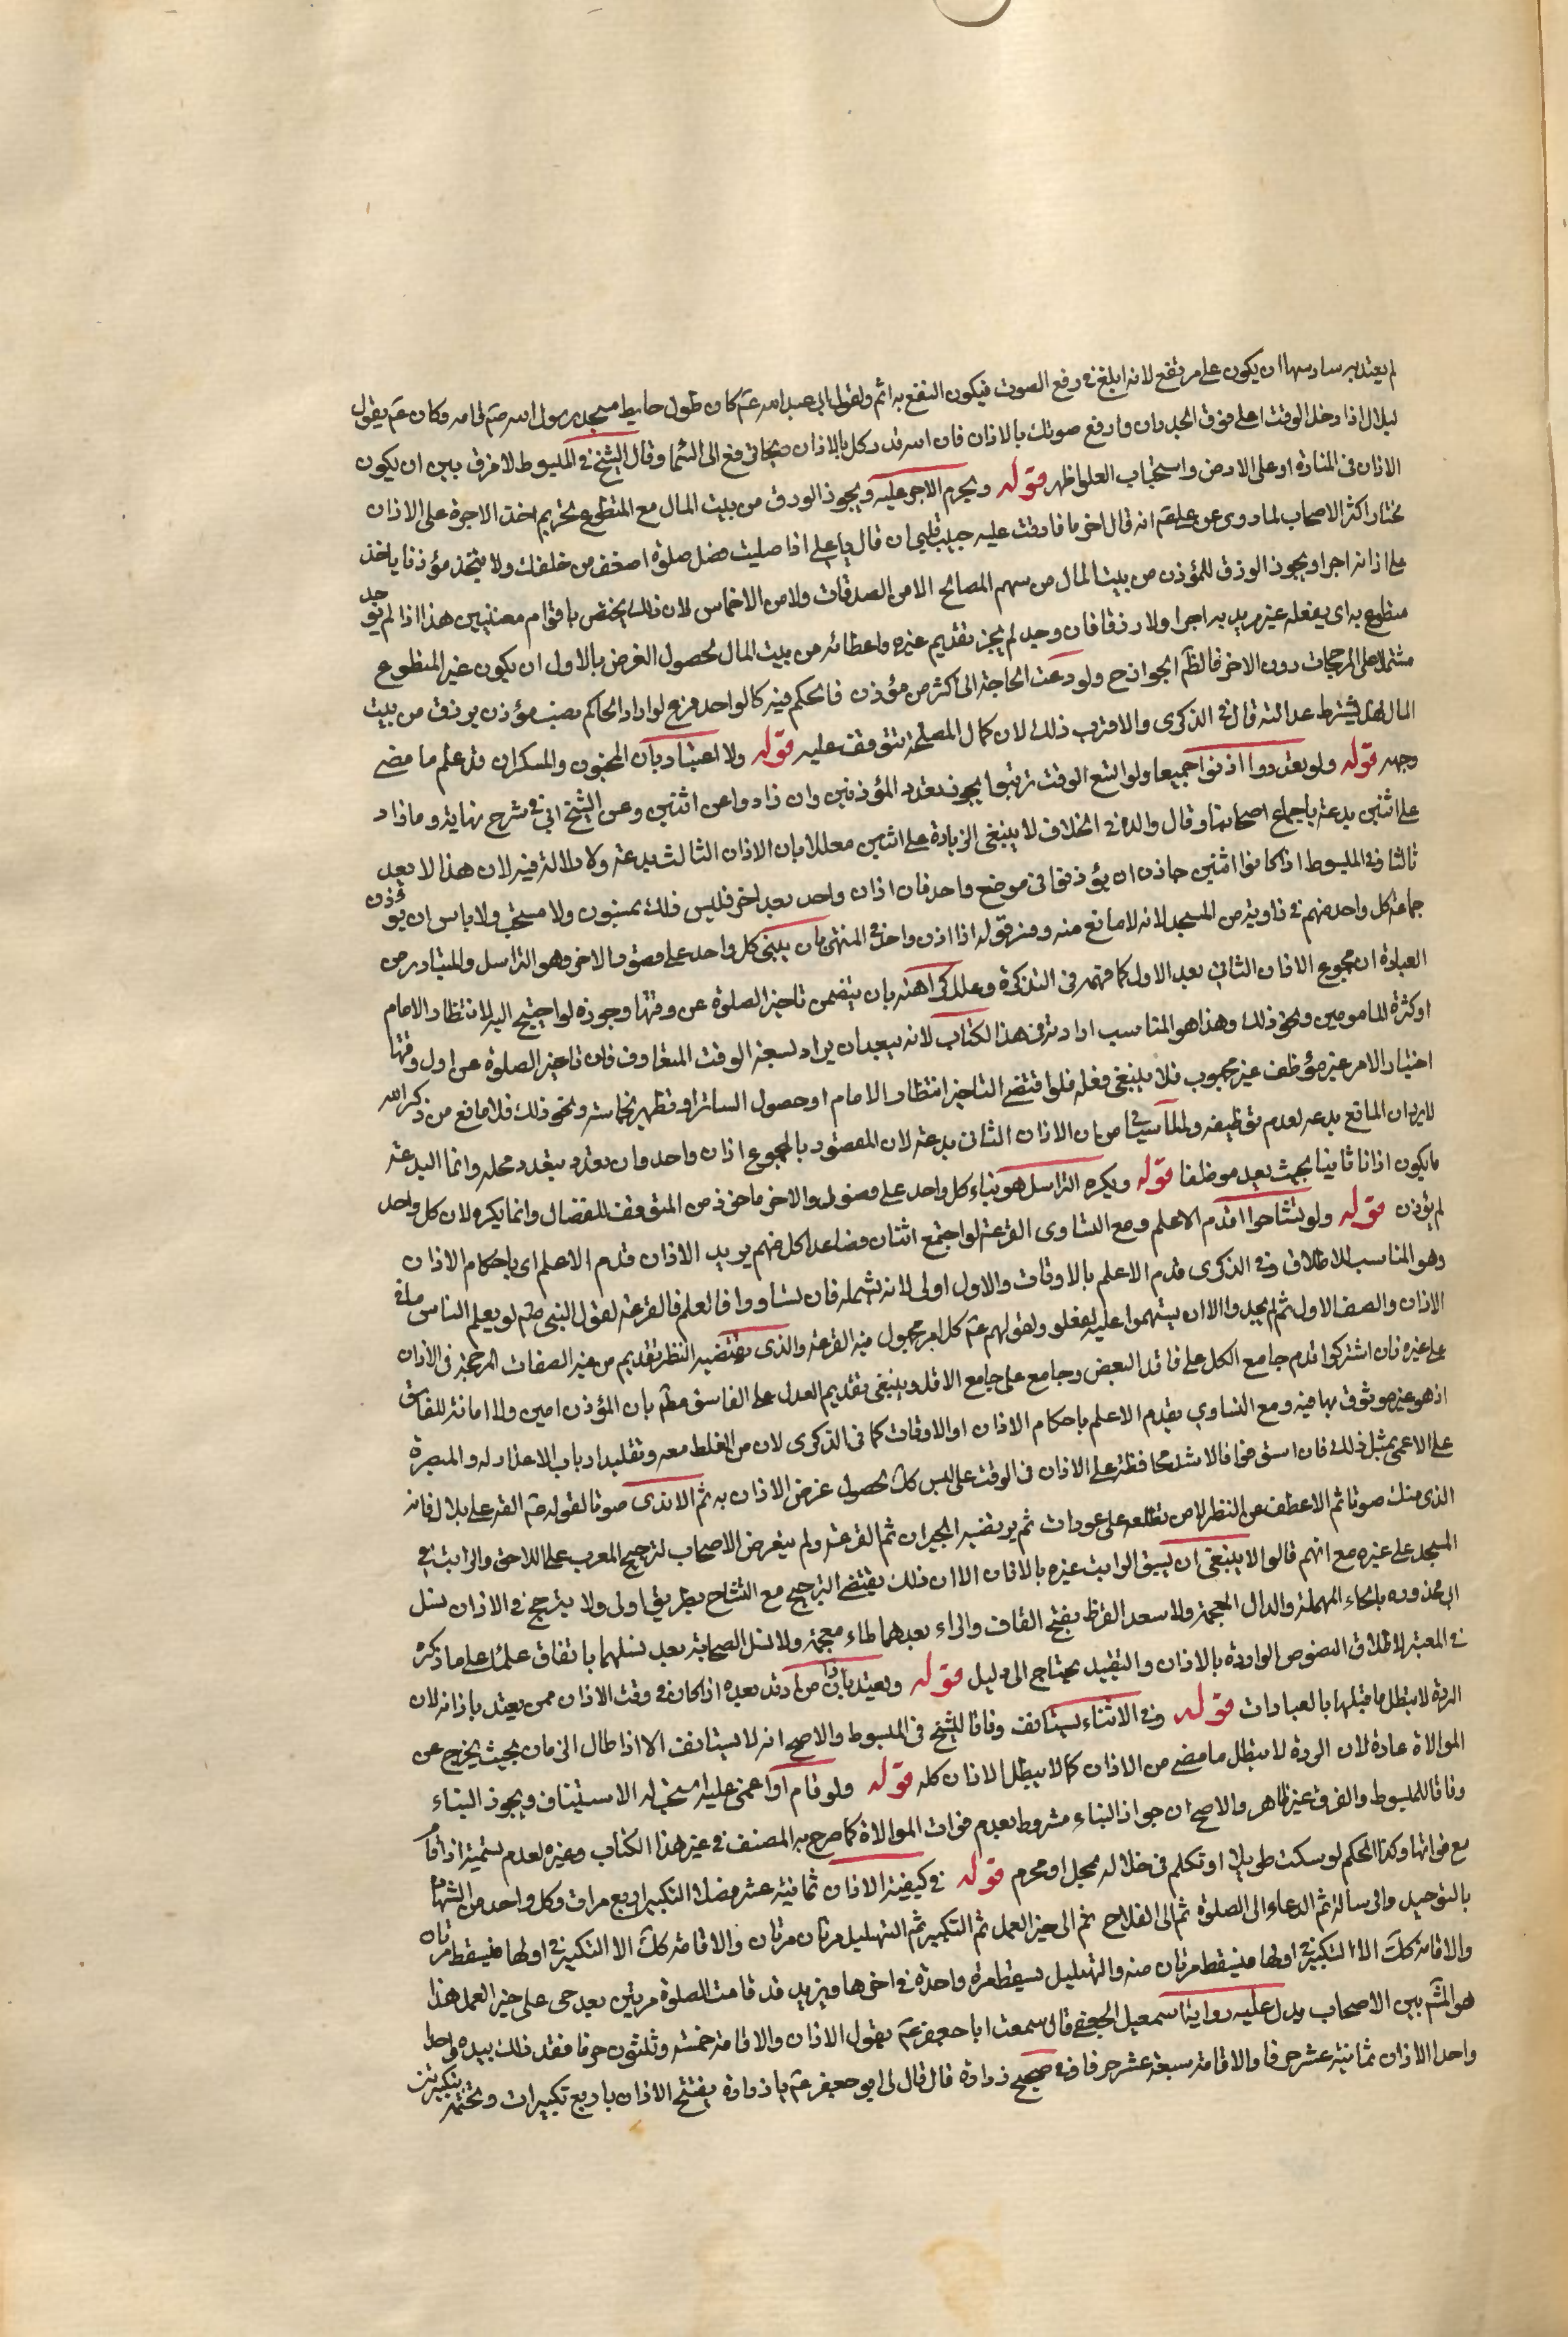 لم يعتد به سادسها ان يكون على مرتفع لانه ابلغ في رفع الصوت فيكون النفع به اتم ولقول ابي عبد الله عم كان طول حايط مسجد رسول الله صم قامه فكان عم يقول
لبلال اذا دخل الوقت اعل فوق الجدران وارفع صوتك بالاذان فان الله قد وكل بالاذان ريحا ترفع الى السما وقال الشيخ في المبسوط لا فرق بين ان يكون
الاذان في المنارة او على الارض واستحباب العلو اظهر قوله ويحرم الاجر عليه ويجوز الرزق من بيت المال مع المتطوع تحريم اخذ الاجرة على الاذان
مختار اكثر الاصحاب لما روى عن علي عم انه قال اخر ما فارقت عليه حبيب قلبي ان قال يا علي اذا صليت فصل صلوة اضعف من خلفك ولا تتخذ مؤذنا ياخذ
على اذانه اجرا ويجوز الرزق للمؤذن من بيت المال من سهم المصالح لا من الصدقات ولا من الاخماس لان ذلك يختص باقوام معينين هذا اذا لم يوجد
متطوع به اي يفعله غير مريد به اجرا ولا رزقا فان وجد لم يجز تقديم غيره واعطائه من بيت المال لحصول الغرض بالاول ان يكون غير المتطوع
مشتملا على المرجحات دون الاخر فالظم الجواز ح ولو دعت الحاجة الى اكثر من مؤذن فالحكم فيه كالواحد فرع لو اراد الحاكم نصب مؤذن يرزق من بيت
المال هل يشترط عدالته قال في الذكرى والاقرب ذلك لان كمال المصلحة يتوقف عليه قوله ولا اعتبار باذان المجنون والسكران قد علم ما مضى
وجهه قوله ولو تعددوا اذنوا جميعا ولو اتسع الوقت ترتبوا يجوز تعدد المؤذنين وان زادوا عن اثنين وعن الشيخ ابي في شرح نهاية وما زاد
على اثنين بدعة باجماع اصحابنا وقال والده في الخلاف لا ينبغي الزيادة على اثنين معللا بان الاذان الثالث بدعة ولا دلالة فيه لان هذا لا يعد
ثالثا وفي المبسوط اذا كانوا اثنين جاز ان يؤذنوا في موضع واحد فان اذان واحد بعد اخر فليس ذلك بمسنون ولا مستحب ولا باس ان يؤذن
جماعة كل واحد منهم في زاوية من المسجد لانه لا مانع منه وفسر قوله اذا اذن واحد في المنتهى بان يبنى كل واحد على فصول الاخر وهو التراسل والمتبادر من
العبارة ان مجموع الاذان الثاني بعد الاول كما فهمه في التذكرة وعلل كراهته بان يتضمن تاخير الصلوة عن وقتها وجوزه لو احتيج اليه لانتظار الامام
او كثرة المامومين ونحو ذلك وهذا هو المناسب ارادته في هذا الكتاب لانه يبعد ان يراد لسعة الوقت المتعارف فان تاخير الصلوة عن اول وقتها
اختيار الامر غير موظف غير محبوب فلا ينبغي فعله فلو اقتضى التاخير انتظار الامام او حصول الساتر او تطهير نجاسة ونحو ذلك فلا مانع من ذكر الله
لا يراد ان المانع بدعة لعدم توظيفه ولما سياتي من ان الاذان الثاني بدعة لان المقصود بالمجموع اذان واحد وان تعدد بتعدد محله وانما البدعة
ما يكون اذانا ثانيا بحيث يعد موظفا قوله ويكره التراسل هو بناء كل واحد على فصول الاخر ماخوذ من المتوقف للفصال وانما يكره لان كل واحد
لم يؤذن قوله ولو تشاحوا قدم الاعلم ومع التساوى القرعة لو اجتمع اثنان فصاعدا كل منهم يريد الاذان قدم الاعلم اى باحكام الاذان
وهو المناسب للاطلاق وفي الذكرى قدم الاعلم بالاوقات والاول اولى لانه يشمله فان تساووا فالعلم فالقرعة لقول النبي صم لو يعلم الناس ما في
الاذان والصف الاول ثم لم يجدوا الا ان يستهموا عليه لفعلوا ولقولهم عم كل امر مجهول فيه القرعة والذى يقتضيه النظر تقديم من غير الصفات المرجحة في الاذان
على غيره فان اشتركوا قدم جامع الكل على فاقد البعض وجامع على جامع الاقل وينبغي تقديم العدل على الفاسق مطم بان المؤذن امين ولا امانة للفاسق
اذ هو غير موثوق بها فيه ومع التساوي يقدم الاعلم باحكام الاذان او الاوقات كما في الذكرى لان من الغلط معه وتقليد ارباب الاعذار له والمبصرة
على الاعمى بمثل ذلك فان استووا فالاشد محافظة على الاذان في الوقت على ليس كك لحصول غرض الاذان به ثم الاندى صوتا لقوله عم القه على بلال فانه
اندى منك صوتا ثم الاعطف عن النظر لامن تطلعه على عورات ثم يرتضيه الجيران ثم القرعة ولم يتعرض الاصحاب لترجيح المعرب على اللاحن والراتب في
المسجد على غيره مع انهم قالوا لا ينبغي ان يسبق الراتب غيره بالاذان الا ان ذلك يقتضي الترجيح مع التشاح بطريق اولى ولا يترجح في الاذان نسل
ابي محذوره بالحاء المهملة والذال المعجمة ولا سعد القرظ بفتح القاف والراء بعدهما ظاء معجمة ولا نسل الصحابة بعد نسلهما باتفاق علمائنا على ما ذكره
في المعتبر لاطلاق النصوص الواردة بالاذان والتقييد يحتاج الى دليل قوله ويعتد باذان من ارتد بعده اذا كان في وقت الاذان ممن يعتد باذانه لان
الردة لا تبطل ما قبلها بالعبادات قوله وفي الاثناء يستانف وفاقا للشيخ في المبسوط والاصح انه لا يستانف الا اذا طال الزمان بحيث يخرج عن
الموالاة عادة لان الردة لا تبطل ما مضى من الاذان كما لا يبطل الاذان كله قوله ولو نام او اغمي عليه استحب له الاستيناف ويجوز البناء
وفاقا للمبسوط والفرق غير ظاهر والاصح ان جواز البناء مشروط بعدم فوات الموالاة كما صرح به المصنف في غير هذا الكتاب وغيره لعدم تسميته اذانا
مع فواتها وكذا الحكم لو سكت طويلا او تكلم في خلاله بمحل او محرم قوله في كيفية الاذان ثمانية عشر فصلا التكبير اربع مرات وكل واحد من الشهادة
بالتوحيد والرسالة ثم الدعاء الى الصلوة ثم الى الفلاح ثم الى خير العمل ثم التكبير ثم التهليل مرتان مرتان والاقامة كك الا التكبير في اولها فيسقط مرتان
والاقامة كك الا التكبير في اولها فيسقط مرتان منه والتهليل يسقط مرة واحدة في اخرها ويزيد قد قامت الصلوة مرتين بعد حى على خير العمل هذا
هو المشم بين الاصحاب يدل عليه رواية اسمعيل الجعفي قال سمعت ابا جعفر عم يقول الاذان والاقامة خمسة وثلثون حرفا فعد ذلك بيده واحدا
واحدا الاذان ثمانية عشر حرفا والاقامة سبعة عشر حرفا وفي صحيح زرارة قال قال لى ابو جعفر عم يا زرارة يفتتح الاذان باربع تكبيرات ويختمه بتكبيرتين